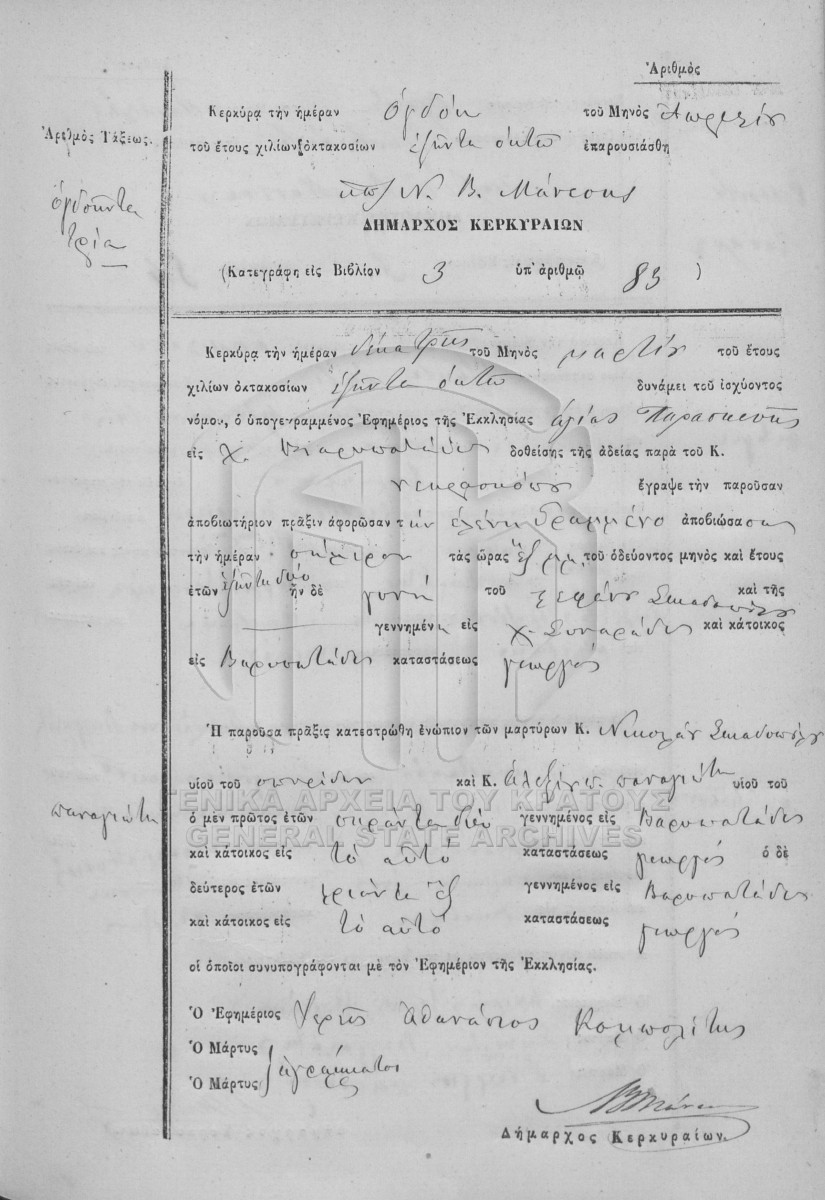 Ἀριθμὸς
Κερκύρα τὴν ἡμέραν ὀγδόη τοῦ Μηνὸς Ἀπριλίου
Ἀριθμὸς Τάξεως.
τοῦ ἔτους χιλίων ὀκτακοσίων ἑξῆντα ὀκτὼ ἐπαρουσιάσθη
ὀγδοῆντα
τρία
Ν. Β. Μάνεσης
ΔΗΜΑΡΧΟΣ ΚΕΡΚΥΡΑΙΩΝ
(Κατεγράφη εἰς Βιβλίον 3 ὑπ' ἀριθμῷ 83 )
Κερκύρᾳ τὴν ἡμέραν δεκατρῆς τοῦ Μηνὸς μαρτίου τοῦ ἔτους
χιλίων ὀκτακοσίων ἑξῆντα ὀκτὼ δυνάμει τοῦ ἰσχύοντος
νόμου, ὁ ὑπογεγραμμένος Ἐφημέριος τῆς Ἐκκλησίας ἁγίας Παρασκευῆς
εἰς χ. Βαρυπατάδες δοθείσης τῆς ἀδείας παρὰ τοῦ Κ.
νεκροσκόπου ἔγραψε τὴν παροῦσαν
ἀποβιωτήριον πρᾶξιν ἀφορῶσαν τὴν ἑλένη δραμμένο ἀποβιώσασα
τὴν ἡμέραν σήμερον τὰς ὥρας ἕξ τοῦ ὁδεύοντος μηνὸς καὶ ἔτους
ἐτῶν ἑξῆντα δύο ἦν δὲ γυνὴ τοῦ Σκιαδοπούλου καὶ τῆς
γεννημένη εἰς χ. Συναράδες καὶ κάτοικος
εἰς Βαρυπατάδες καταστάσεως γεωργός
Ἡ παροῦσα πρᾶξις κατεστρώθη ἐνώπιον τῶν μαρτύρων Κ. Νικολάου Σκιαδοπούλου
υἱοῦ τοῦ σπυρίδου καὶ Κ. Ἀλεξίου π. παναγιώτη υἱοῦ τοῦ
παναγιώτη
ΓΕΝΙΚΑ ΑΡΧΕΙΑ ΤΟΥ ΚΡΑΤΟΥΣ
ὁ μὲν πρῶτος ἐτῶν σαράντα δύο γεννημένος εἰς Βαρυπατάδες
GENERAL STATE ARCHIVES
καὶ κάτοικος εἰς τὸ αὐτὸ καταστάσεως γεωργός ὁ δὲ
δεύτερος ἐτῶν τριάντα ἕξ γεννημένος εἰς Βαρυπατάδες
καὶ κάτοικος εἰς τὸ αὐτὸ καταστάσεως γεωργός
οἱ ὁποῖοι συνυπογράφονται μὲ τὸν Ἐφημέριον τῆς Ἐκκλησίας.
Ὁ Ἐφημέριος Ἱερεῦς Ἀθανάσιος Κομπολίτης
Ὁ Μάρτυς ἀγράμματοι
Ὁ Μάρτυς
Δήμαρχος Κερκυραίων.